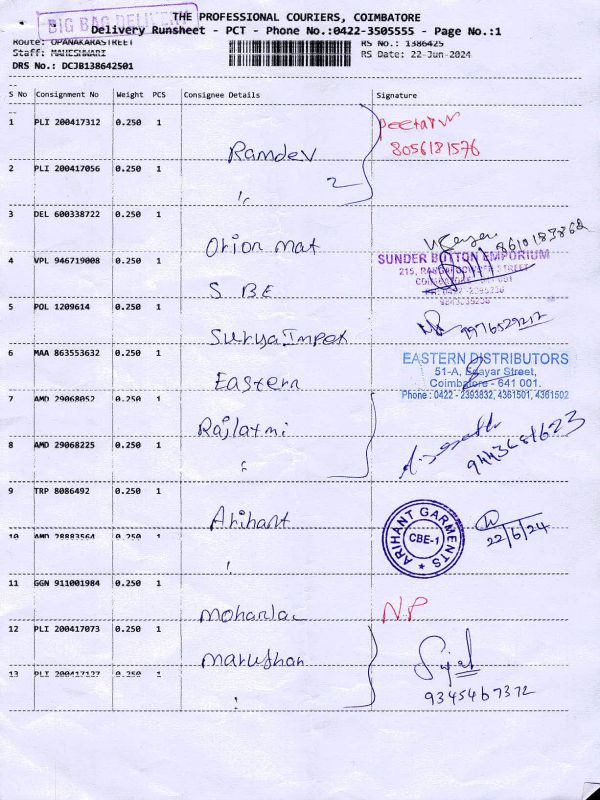 BIG BAG DELIVERY
THE PROFESSIONAL COURIERS, COIMBATORE
Delivery Runsheet - PCT - Phone No.:0422-3505555 - Page No.:1
Route: OPANAKARASTREET
RS No.: 1386425
Staff: MAHESHWARI
RS Date: 22-Jun-2024
DRS No.: DCJB138642501
S No Consignment No Weight PCS Consignee Details Signature
1 PLI 200417312 0.250 1 Ramdev
8056181576
2 PLI 200417056 0.250 1 " 2
3 DEL 600338722 0.250 1 Orion mat
8610183862
4 VPL 946719008 0.250 1 S B E
SUNDER BUTTON EMPORIUM
5 POL 1209614 0.250 1 Surya Impex
9976529212
6 MAA 863553632 0.250 1 Eastern
EASTERN DISTRIBUTORS
51-A, Eswar Street,
Coimbatore - 641 001.
Phone : 0422 - 2393832, 4361501, 4361502
7 AMD 29068052 0.250 1 Rajlaxmi
8 AMD 29068225 0.250 1 "
9443681623
9 TRP 8086492 0.250 1 Arihant
ARIHANT GARMENTS
CBE-1
22/6/24
10 AMD 28883564 0.250 1 "
11 GGN 911001984 0.250 1 Mohanlal
N.P
12 PLI 200417073 0.250 1 Marudhar
13 PLI 200417127 0.250 1 "
9345467372